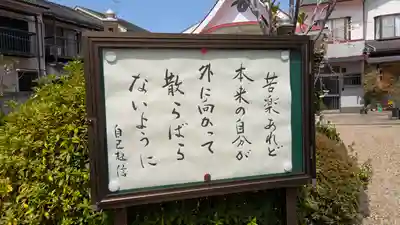 苦楽あれど
本来の自分が
外に向かって
散らばら
ないように